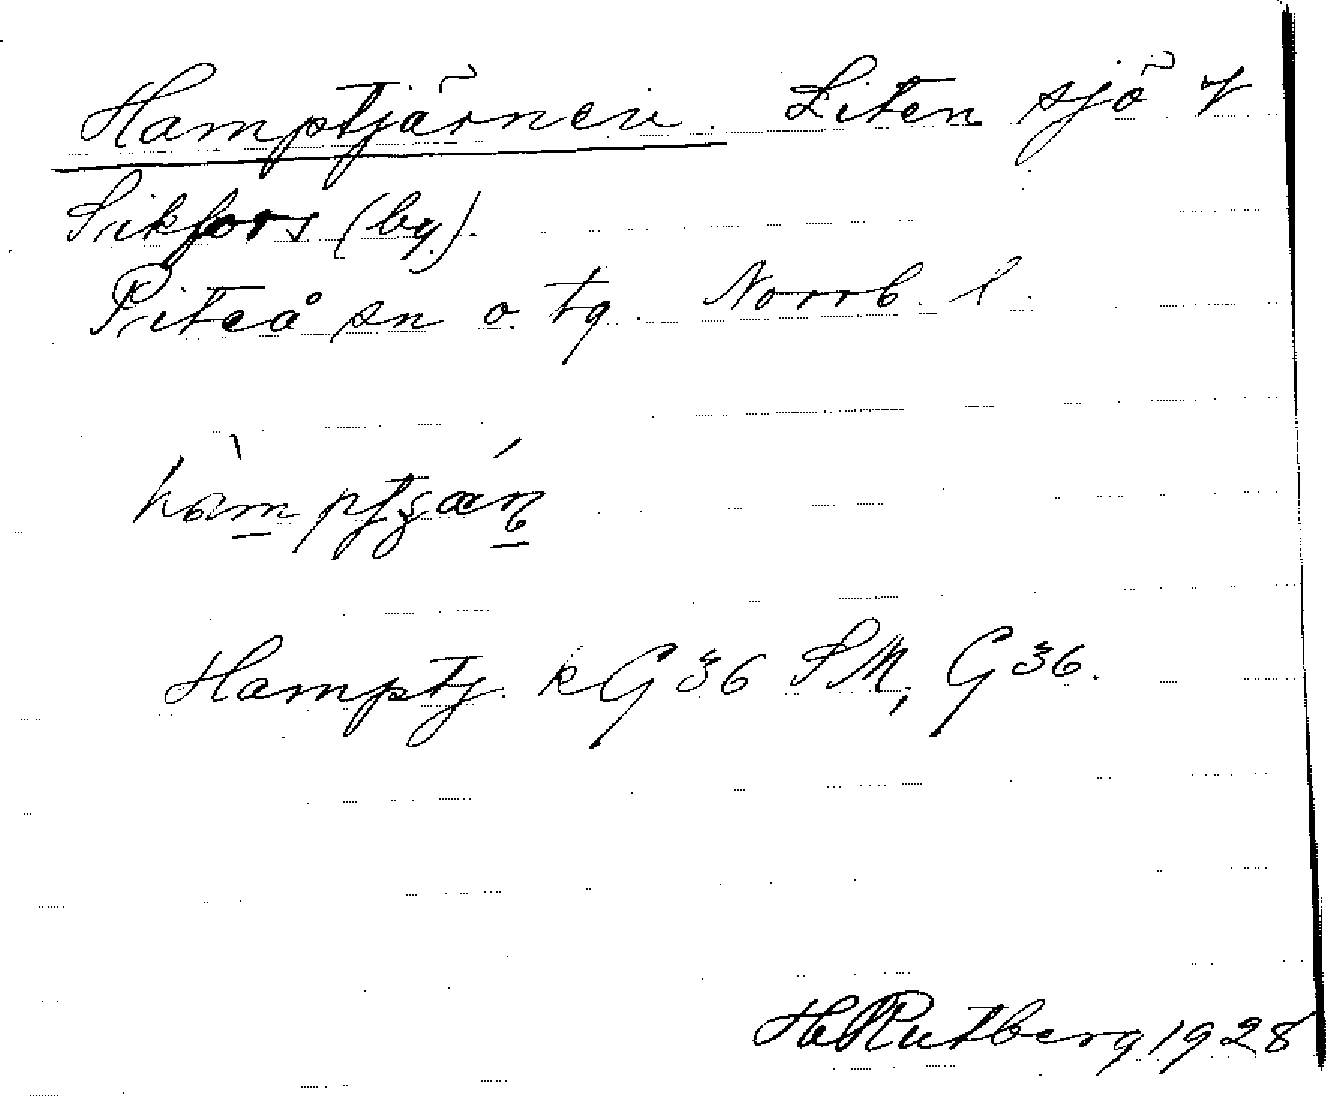 Hamptjärnen. Liten sjö V
Sikfors (by).
Piteå sn o. tg. Norrb. l.
Hamptj. k G36 SM, G36.
H Rutberg 1928